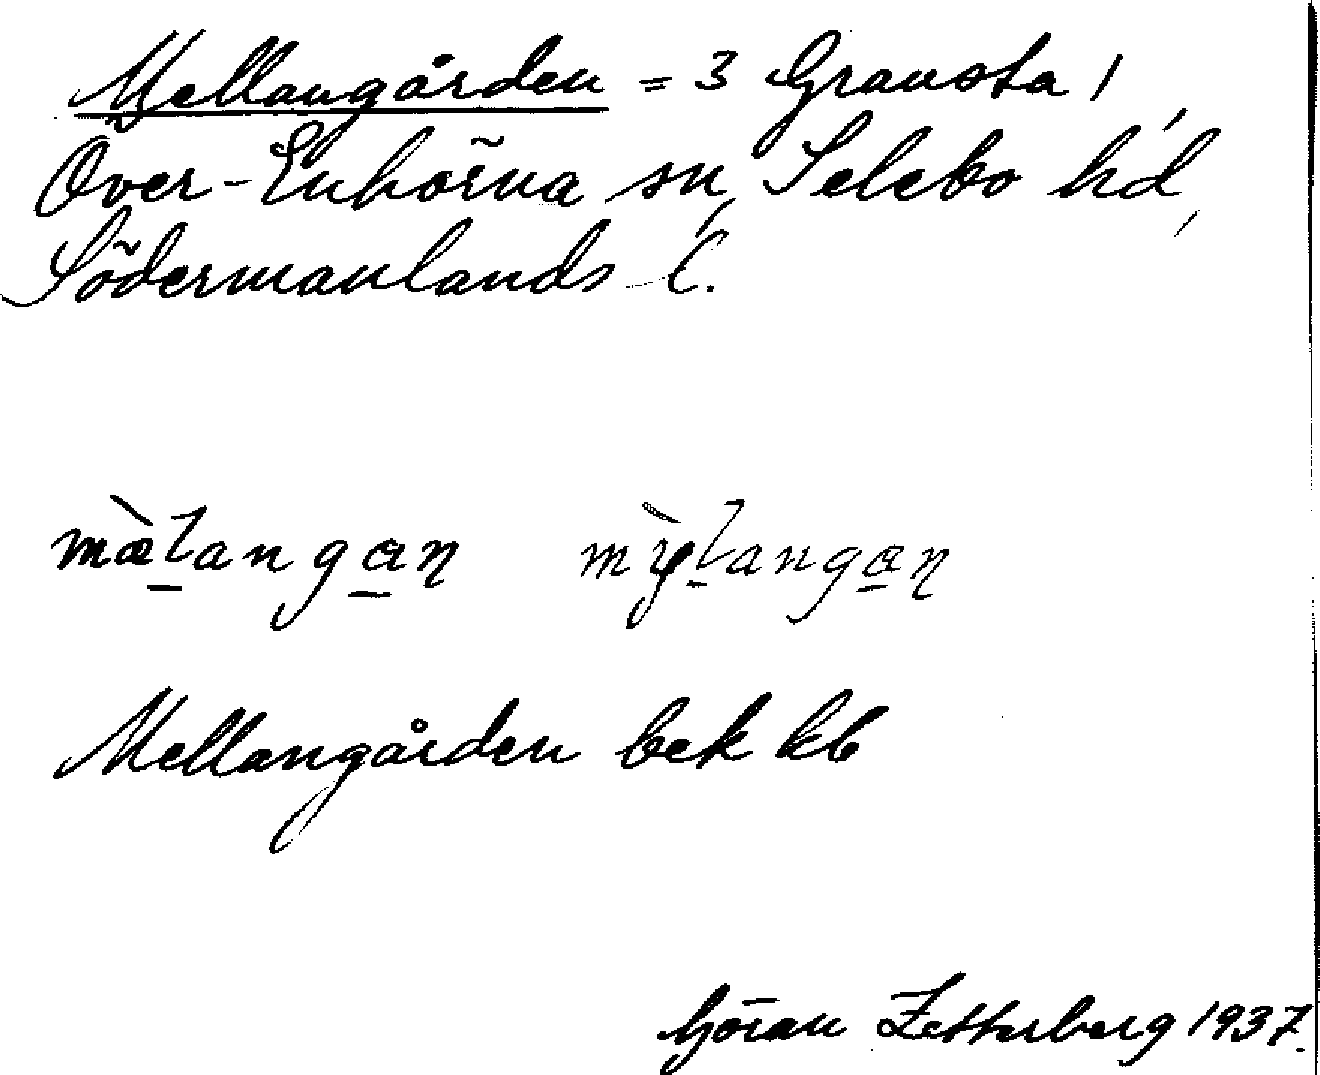 Mellangården = 3 Gransta /
Över-Enhörna sn, Selebo hd,
Södermanlands l.
mæ̀l̠anga̠n
Mellangården bek kb
Göran Zetterberg 1937.